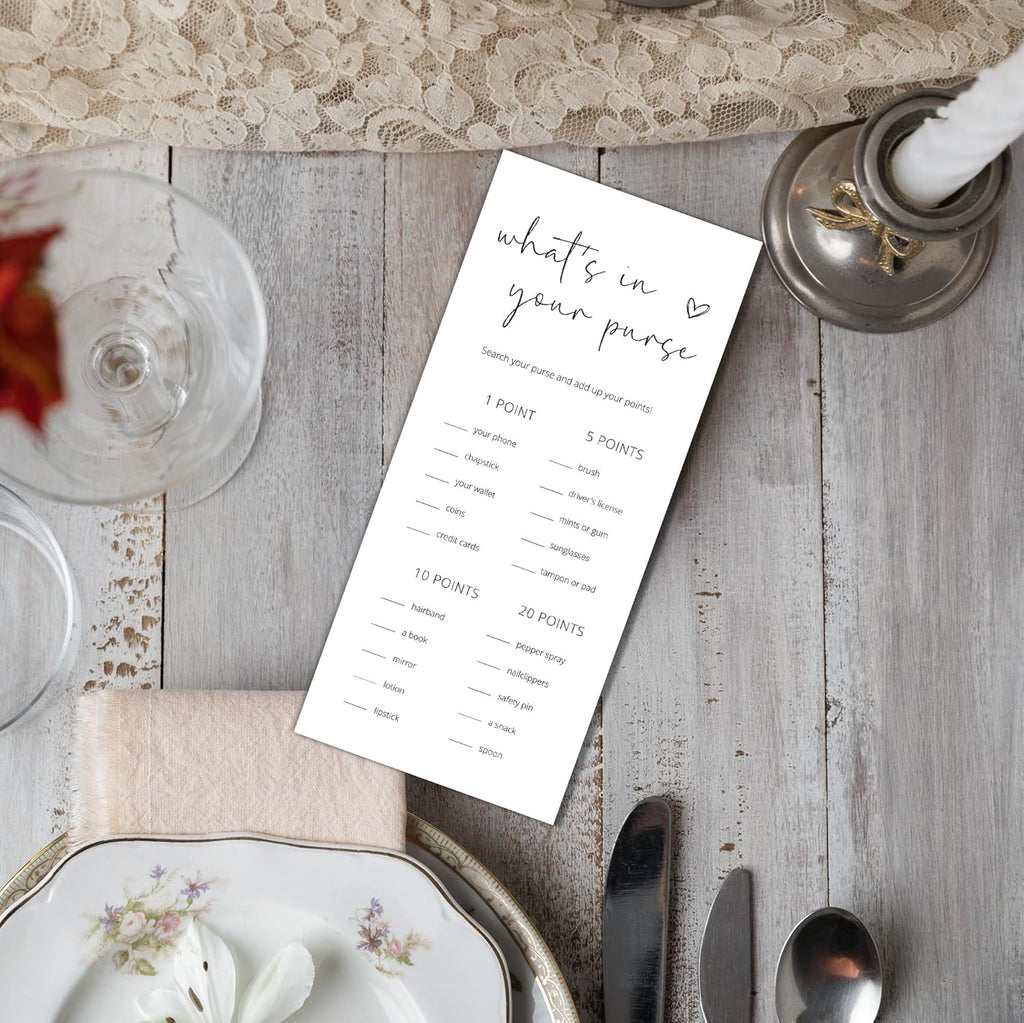 what's in
your purse
Search your purse and add up your points!
1 POINT
your phone
chapstick
your wallet
coins
credit cards
5 POINTS
brush
driver's license
mints or gum
sunglasses
tampon or pad
10 POINTS
hairband
a book
mirror
lotion
lipstick
20 POINTS
pepper spray
nailclippers
safety pin
a snack
spoon